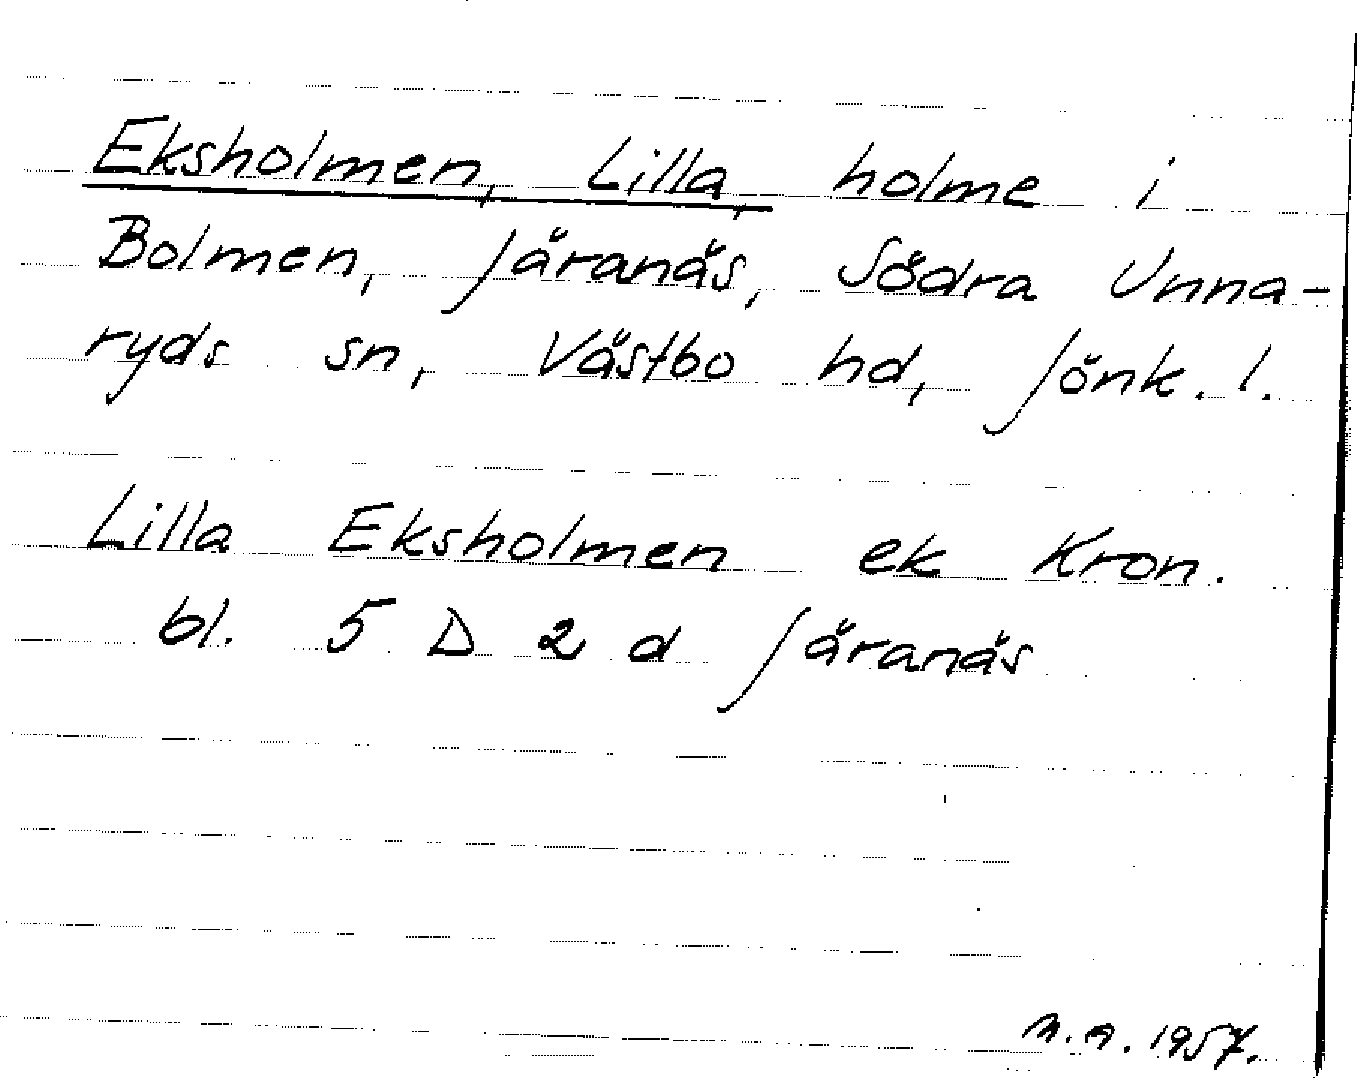 Eksholmen, Lilla, holme i
Bolmen, Järanäs, Södra Unna-
ryds sn, Västbo hd, Jönk. l.
Lilla Eksholmen ek Kron.
bl. 5 D 2 d Järanäs
M.A. 1957.